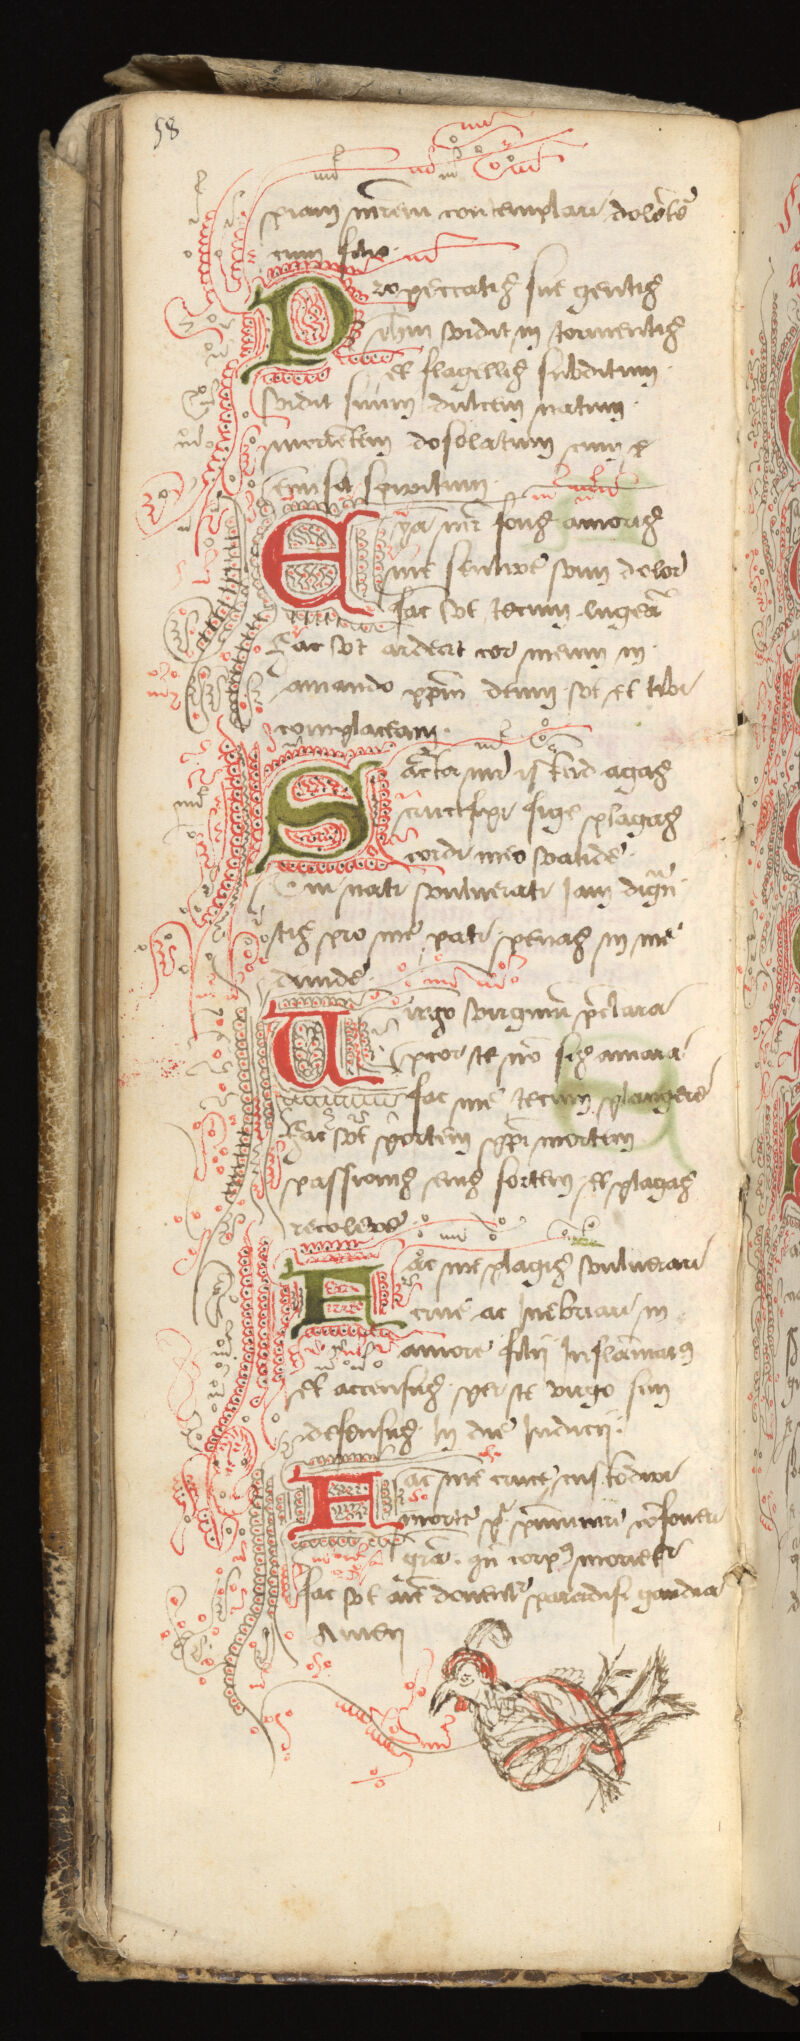 58
piam matrem contemplari dolēte
cum filio
Pro peccatis sue gentis
ihm vidit in tormentis
et flagellis subditum
vidit suum dulcem natum
morientem desolatum cum
emisit spiritum
Eya mr̄ fons amoris
me sentire vim dolor
fac vt tecum lugeā
Fac vt ardeat cor meum in
amando xp̄m deum vt et tibi
complaceam
Sācta mr̄ istud agas
crucifixi fige plagas
cordi meo valide
Tui nati vulnerati Iam dign
tis pro me pati penas in me
diuide
Uirgo virginū p̄clara
pcor te nō sis amara
fac me tecum plangere
Fac vt portem xp̄i mortem
passionis eius sortem et plagas
recolere
Fac me plagis vulnerari
cruce ac Inebriari in
amore filii Inflāmatꝰ
et accensus per te virgo sim
defensus In die Iudicii
Fac me cruce custodiri
morte xp̄i p̄muniri cōfoueri
grā qn̄ corpꝰ morietr
fac vt aīe donetr paradisi gaudia
Amen